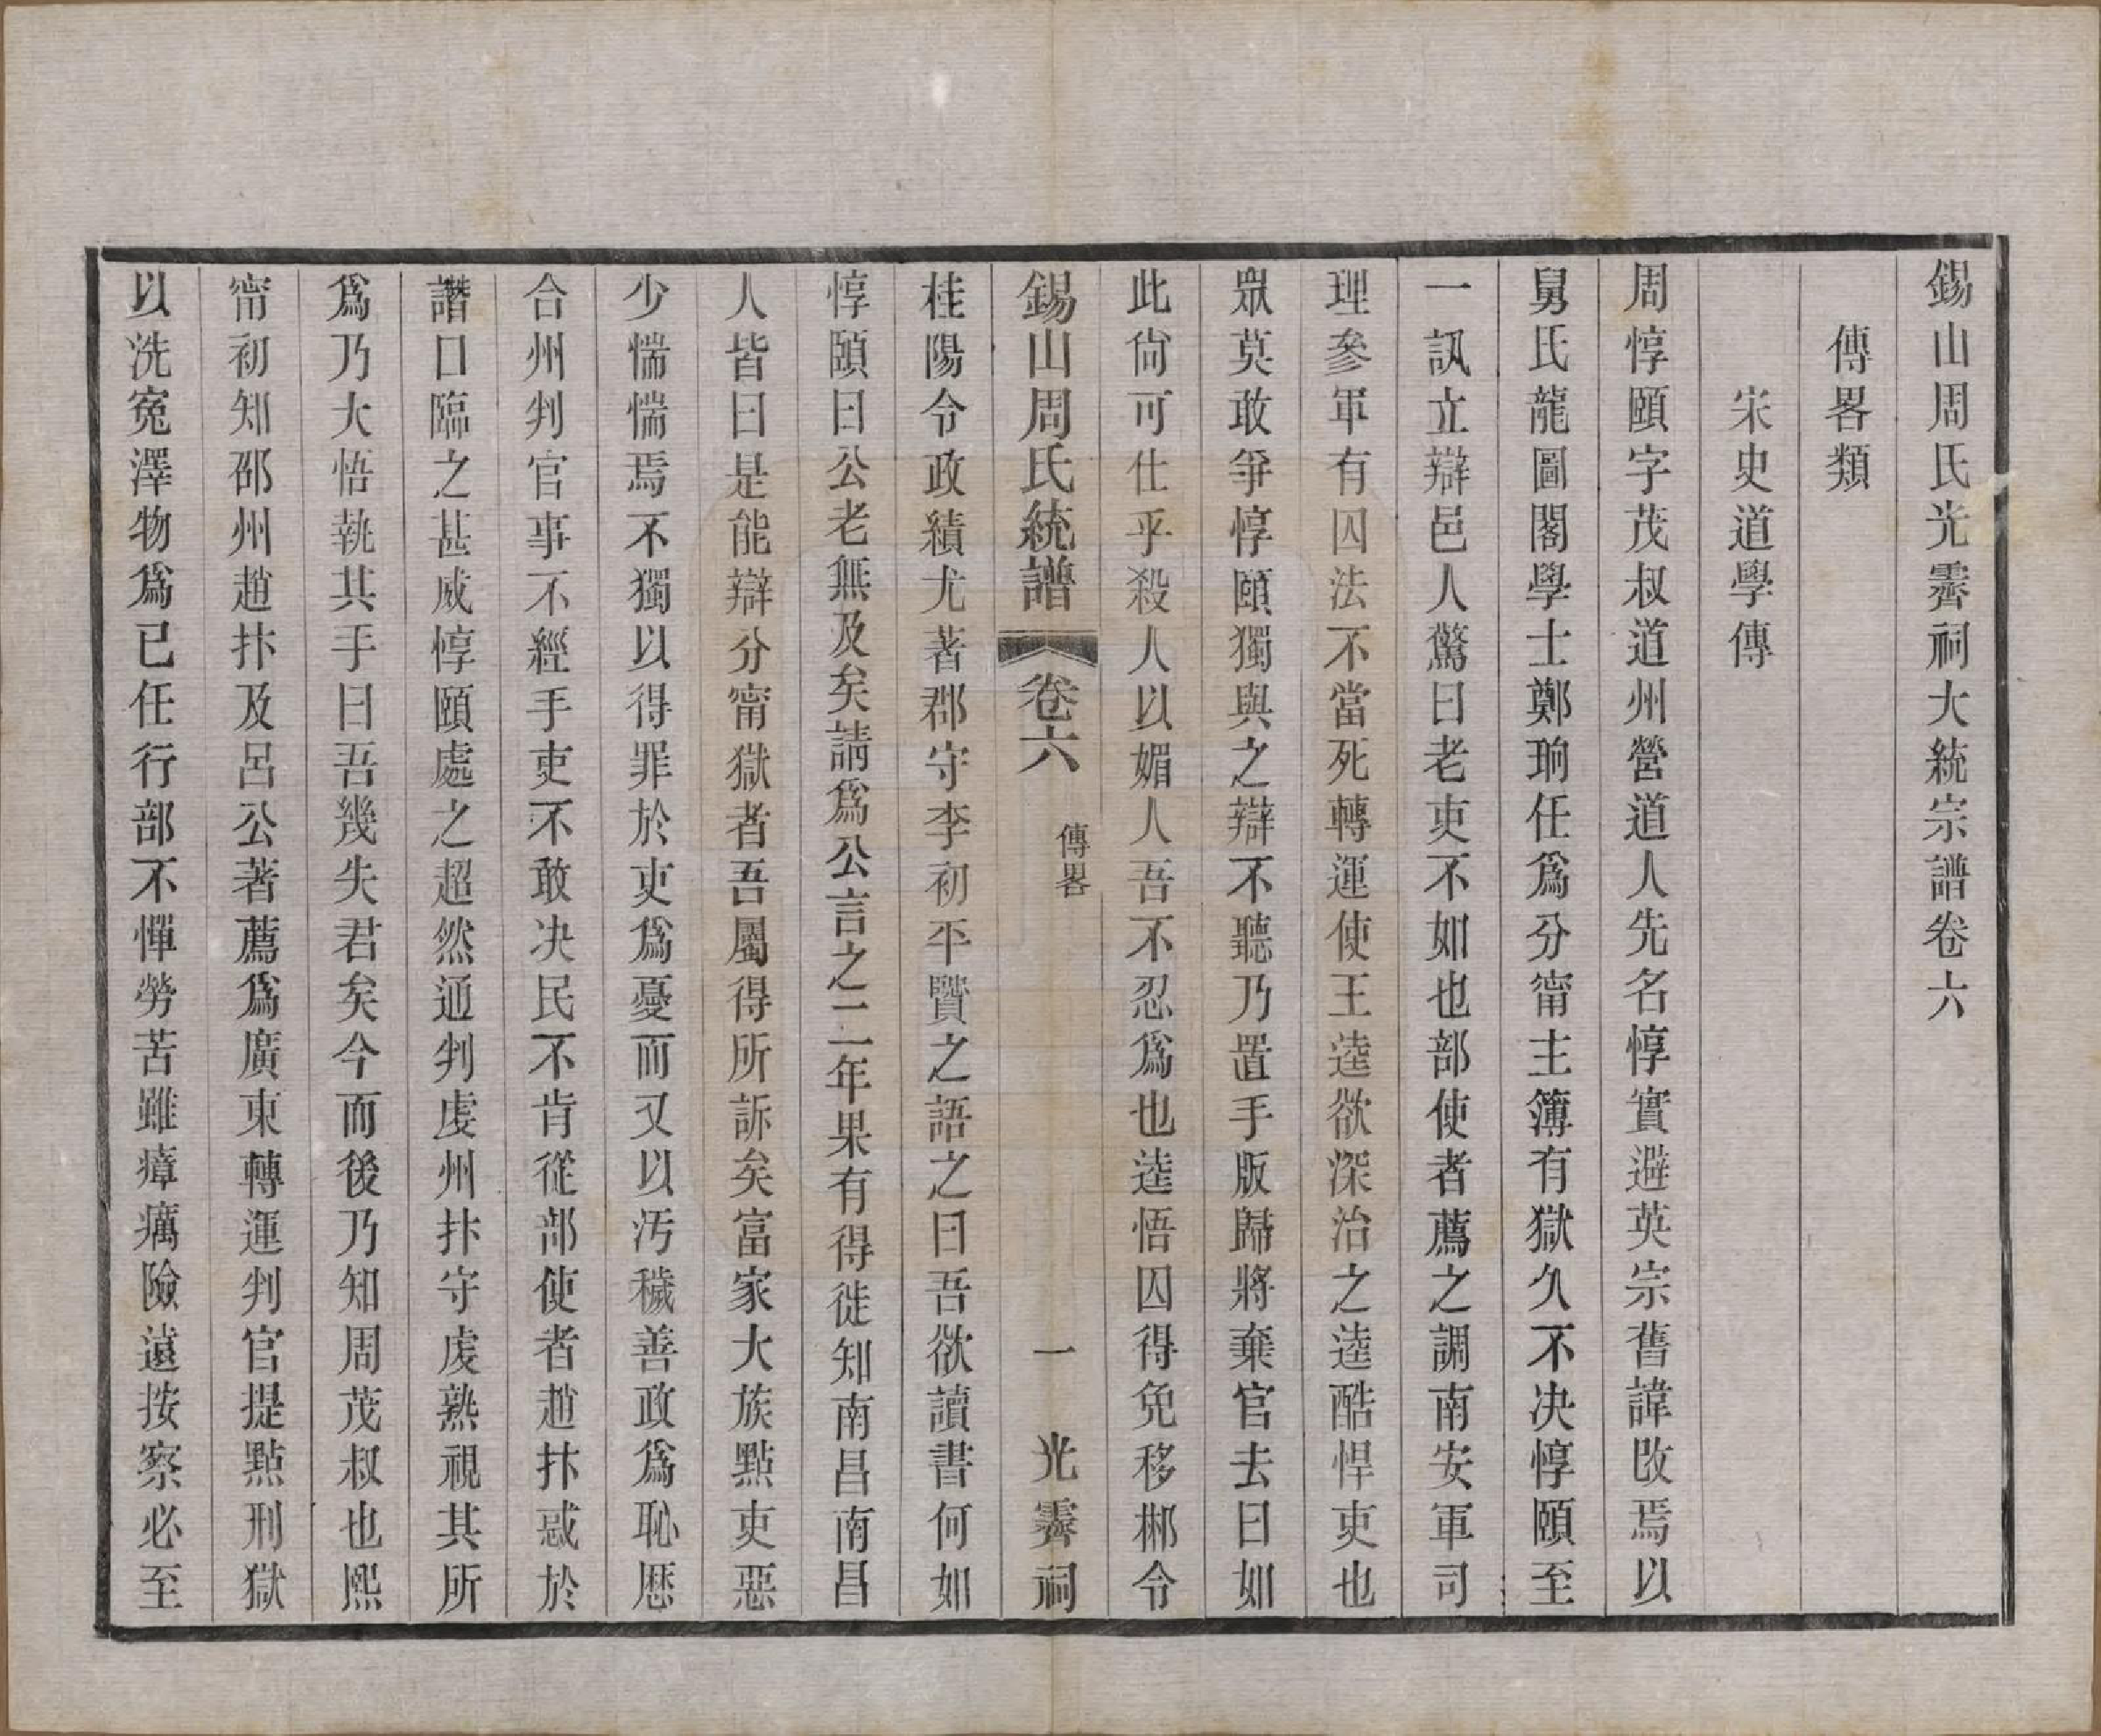 錫山周氏光霽祠大統宗譜卷六
傳畧類
宋史道學傳
周惇頤字茂叔道州營道人先名惇實避英宗舊諱改焉以
舅氏龍圖閣學士鄭珦任爲分甯主簿有獄久不決惇頤至
一訊立辯邑人驚曰老吏不如也部使者薦之調南安軍司
理參軍有囚法不當死轉運使王逵欲深治之逵酷悍吏也
眾莫敢爭惇頤獨與之辯不聽乃置手版歸將棄官去曰如
此尙可仕乎殺人以媚人吾不忍爲也逵悟囚得免移郴令
錫山周氏統譜 卷六 傳畧 一 光霽祠
桂陽令政績尤著郡守李初平賢之語之曰吾欲讀書何如
惇頤曰公老無及矣請爲公言之二年果有得徙知南昌南昌
人皆曰是能辯分甯獄者吾屬得所訴矣富家大族黠吏惡
少惴惴焉不獨以得罪於吏爲憂而又以污穢善政爲恥歷
合州判官事不經手吏不敢决民不肯從部使者趙抃惑於
譖口臨之甚威惇頤處之超然通判虔州抃守虔熟視其所
爲乃大悟執其手曰吾幾失君矣今而後乃知周茂叔也熙
甯初知郴州趙抃及呂公著薦爲廣東轉運判官提點刑獄
以洗寃澤物爲已任行部不憚勞苦雖瘴癘險遠按察必至